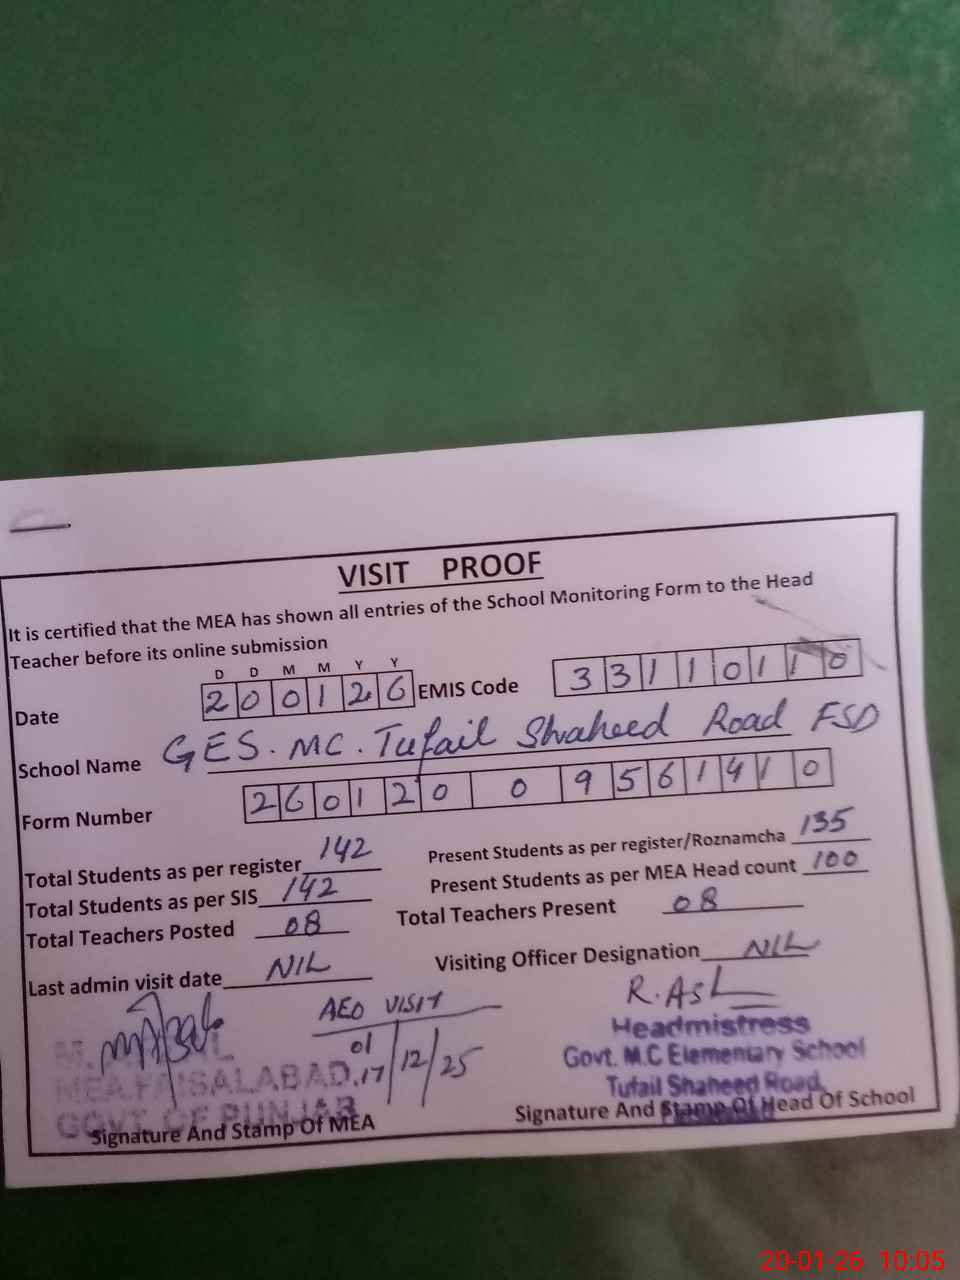 VISIT PROOF
It is certified that the MEA has shown all entries of the School Monitoring Form to the Head
Teacher before its online submission
D D M M Y Y
Date 2 0 0 1 2 6 EMIS Code 3 3 1 1 0 1 1 0
School Name GES. MC. Tufail Shaheed Road FSD
Form Number 2 6 0 1 2 0 0 9 5 6 1 4 1 0
Total Students as per register 142 Present Students as per register/Roznamcha 135
Total Students as per SIS 142 Present Students as per MEA Head count 100
Total Teachers Posted 08 Total Teachers Present 08
Last admin visit date NIL Visiting Officer Designation NIL
AEO VISIT
01/12/25
R. Ash
Headmistress
Govt. M.C Elementary School
Tufail Shaheed Road,
MEA.FAISALABAD.17
GOVT. OF PUNJAB
Signature And Stamp Of MEA Signature And Stamp Of Head Of School
20-01-26 10:05